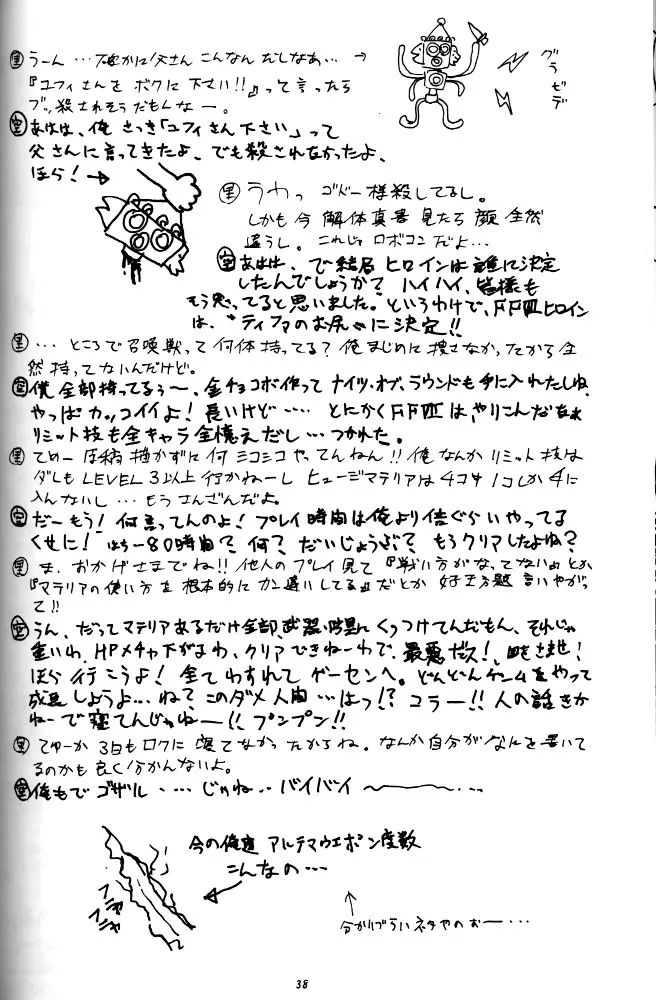 里 うーん…確かに父さん こんなんだしなあ… →
『ユフィさんを ボクに 下さい!!』って言ったら
ブッ殺されそうだもんなー。
グラ ゼデ
空 あはは、俺 さっき「ユフィさん下さい」って
父さんに言ってきたよ、でも殺されなかったよ、
ほら!→
里 うわっ ゴドー様殺してるし。
しかも今 解体真書 見たら 顔 全然
違うし。これじゃ ロボコンだよ…
空 あはは、で結局 ヒロインは誰に決定
したんでしょうか? ハイハイ、皆様も
もう思ってると思いました。というわけで、FFⅦヒロイン
は、"ティファのお尻"に決定!!
里 … ところで召喚獣って何体持ってる? 俺まじめに捜さなかったから全
然持ってないんだけど。
空 僕全部持ってるぅ〜、金チョコボ作ってナイツ・オブ・ラウンドも手に入れたしね、
やっぱカッコイイよ! 長いけど…… とにかくFFⅦは、やりこんだなぁ
リミット技も全キャラ全憶えだし…つかれた。
里 てめー 原稿描かずに何ニコニコやってんねん!! 俺なんかリミット技は
ダレもLEVEL3以上行かねーし ヒュージマテリアは4コ中1コしか手に
入んないし…もうさんざんだよ。
空 だーもう! 何言ってんのよ! プレイ時間は俺より倍ぐらいやってる
くせに! 80時間? 何? だいじょうぶ? もうクリアしたよね?
里 ま、おかげさまでね!! 他人のプレイ見て『戦い方がなってない』とか
『マテリアの使い方を根本的にカン違いしてる』だとか 好き放題言いやがっ
て!!
空 うん、だってマテリアあるだけ全部、武器・防具にくっつけてんだもん、それじゃ
重いわ、HPメチャ下がるわ、クリアできねーわで、最悪だス!
ほら行こうよ! 全てわすれてゲーセンへ。どんどんゲームをやって
成長しようよ…ね? このダメ人間…はっ!? コラー!! 人の話きか
ねーで寝てんじゃねー!! プンプン!!
里 てゆーか 3日もロクに寝てなかったからね。なんか自分がなにを書いて
るのかも良く分かんないよ。
空 俺もでゴザル…… じゃね‥ バイバイ 〜…
今の俺達 アルテマウエポン度数
こんなの…
フニャ フニャ
↑
分かりづらいネタやのぉー…
38